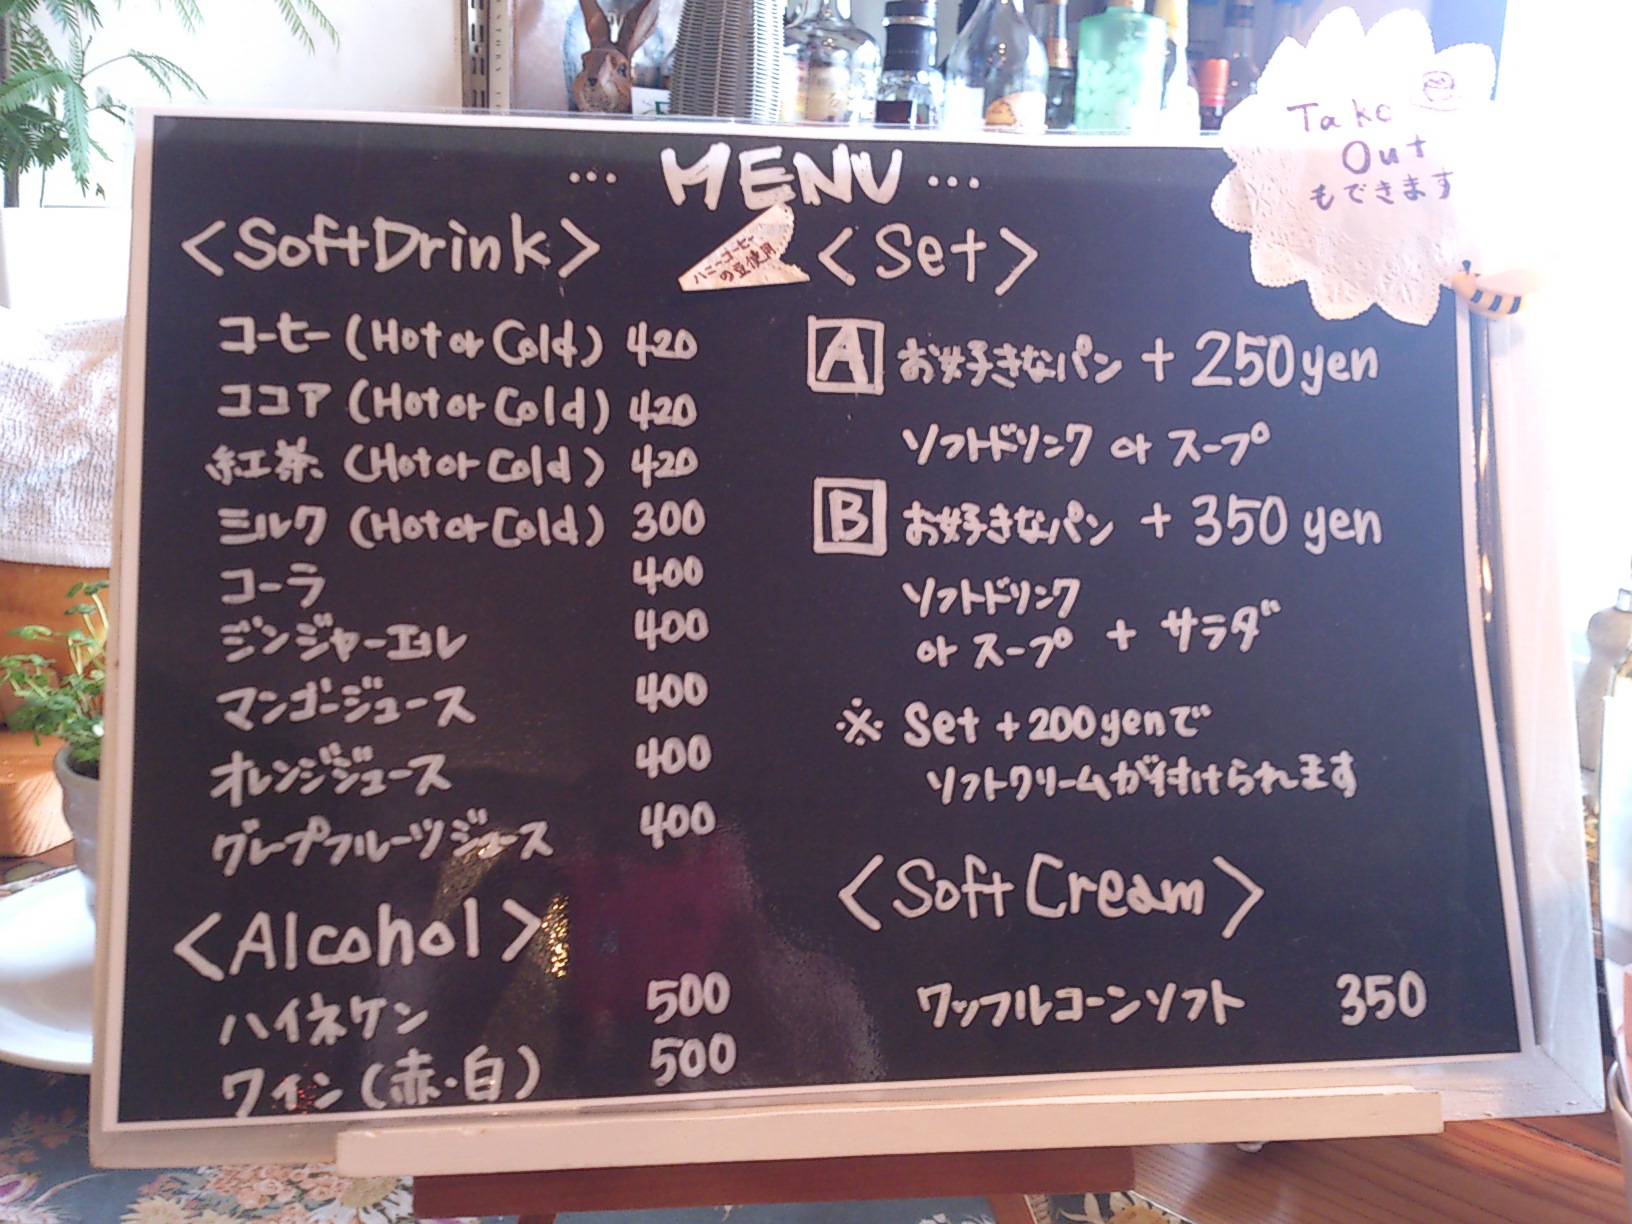 … MENU …
Take
Out
もできます
<SoftDrink>
ハニーコーヒー
の豆使用
コーヒー (Hot or Cold) 420
ココア (Hot or Cold) 420
紅茶 (Hot or Cold) 420
ミルク (Hot or Cold) 300
コーラ 400
ジンジャーエール 400
マンゴージュース 400
オレンジジュース 400
グレープフルーツジュース 400
<Alcohol>
ハイネケン 500
ワイン (赤・白) 500
<Set>
A お好きなパン + 250yen
ソフトドリンク or スープ
B お好きなパン + 350yen
ソフトドリンク
or スープ + サラダ
※ Set +200yenで
ソフトクリームが付けられます
<Soft Cream>
ワッフルコーンソフト 350